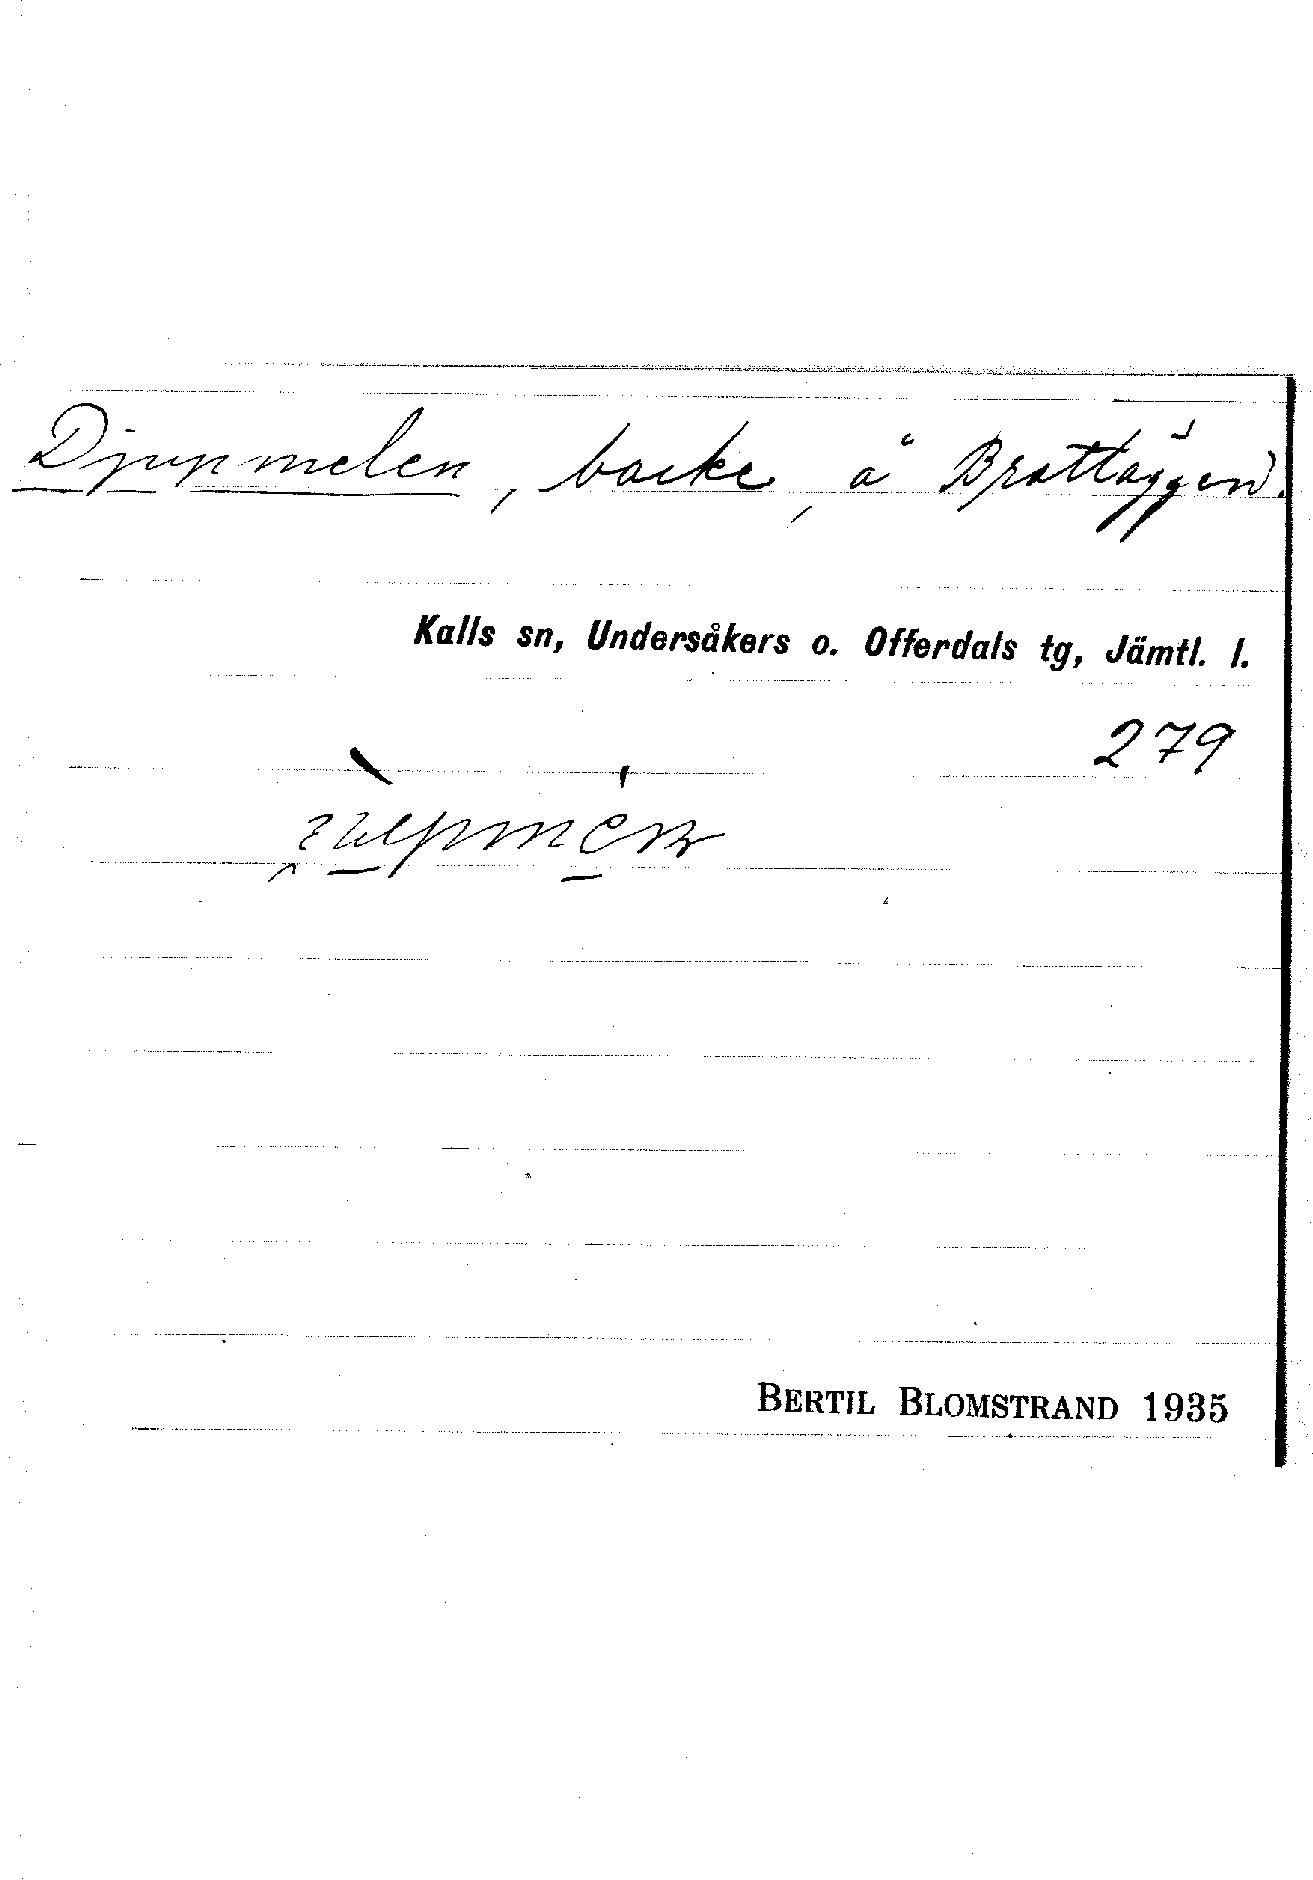 Djupmelen, backe, å Brattäggen.
Kalls sn, Undersåkers o. Offerdals tg, Jämtl. l.
279
BERTIL BLOMSTRAND 1935